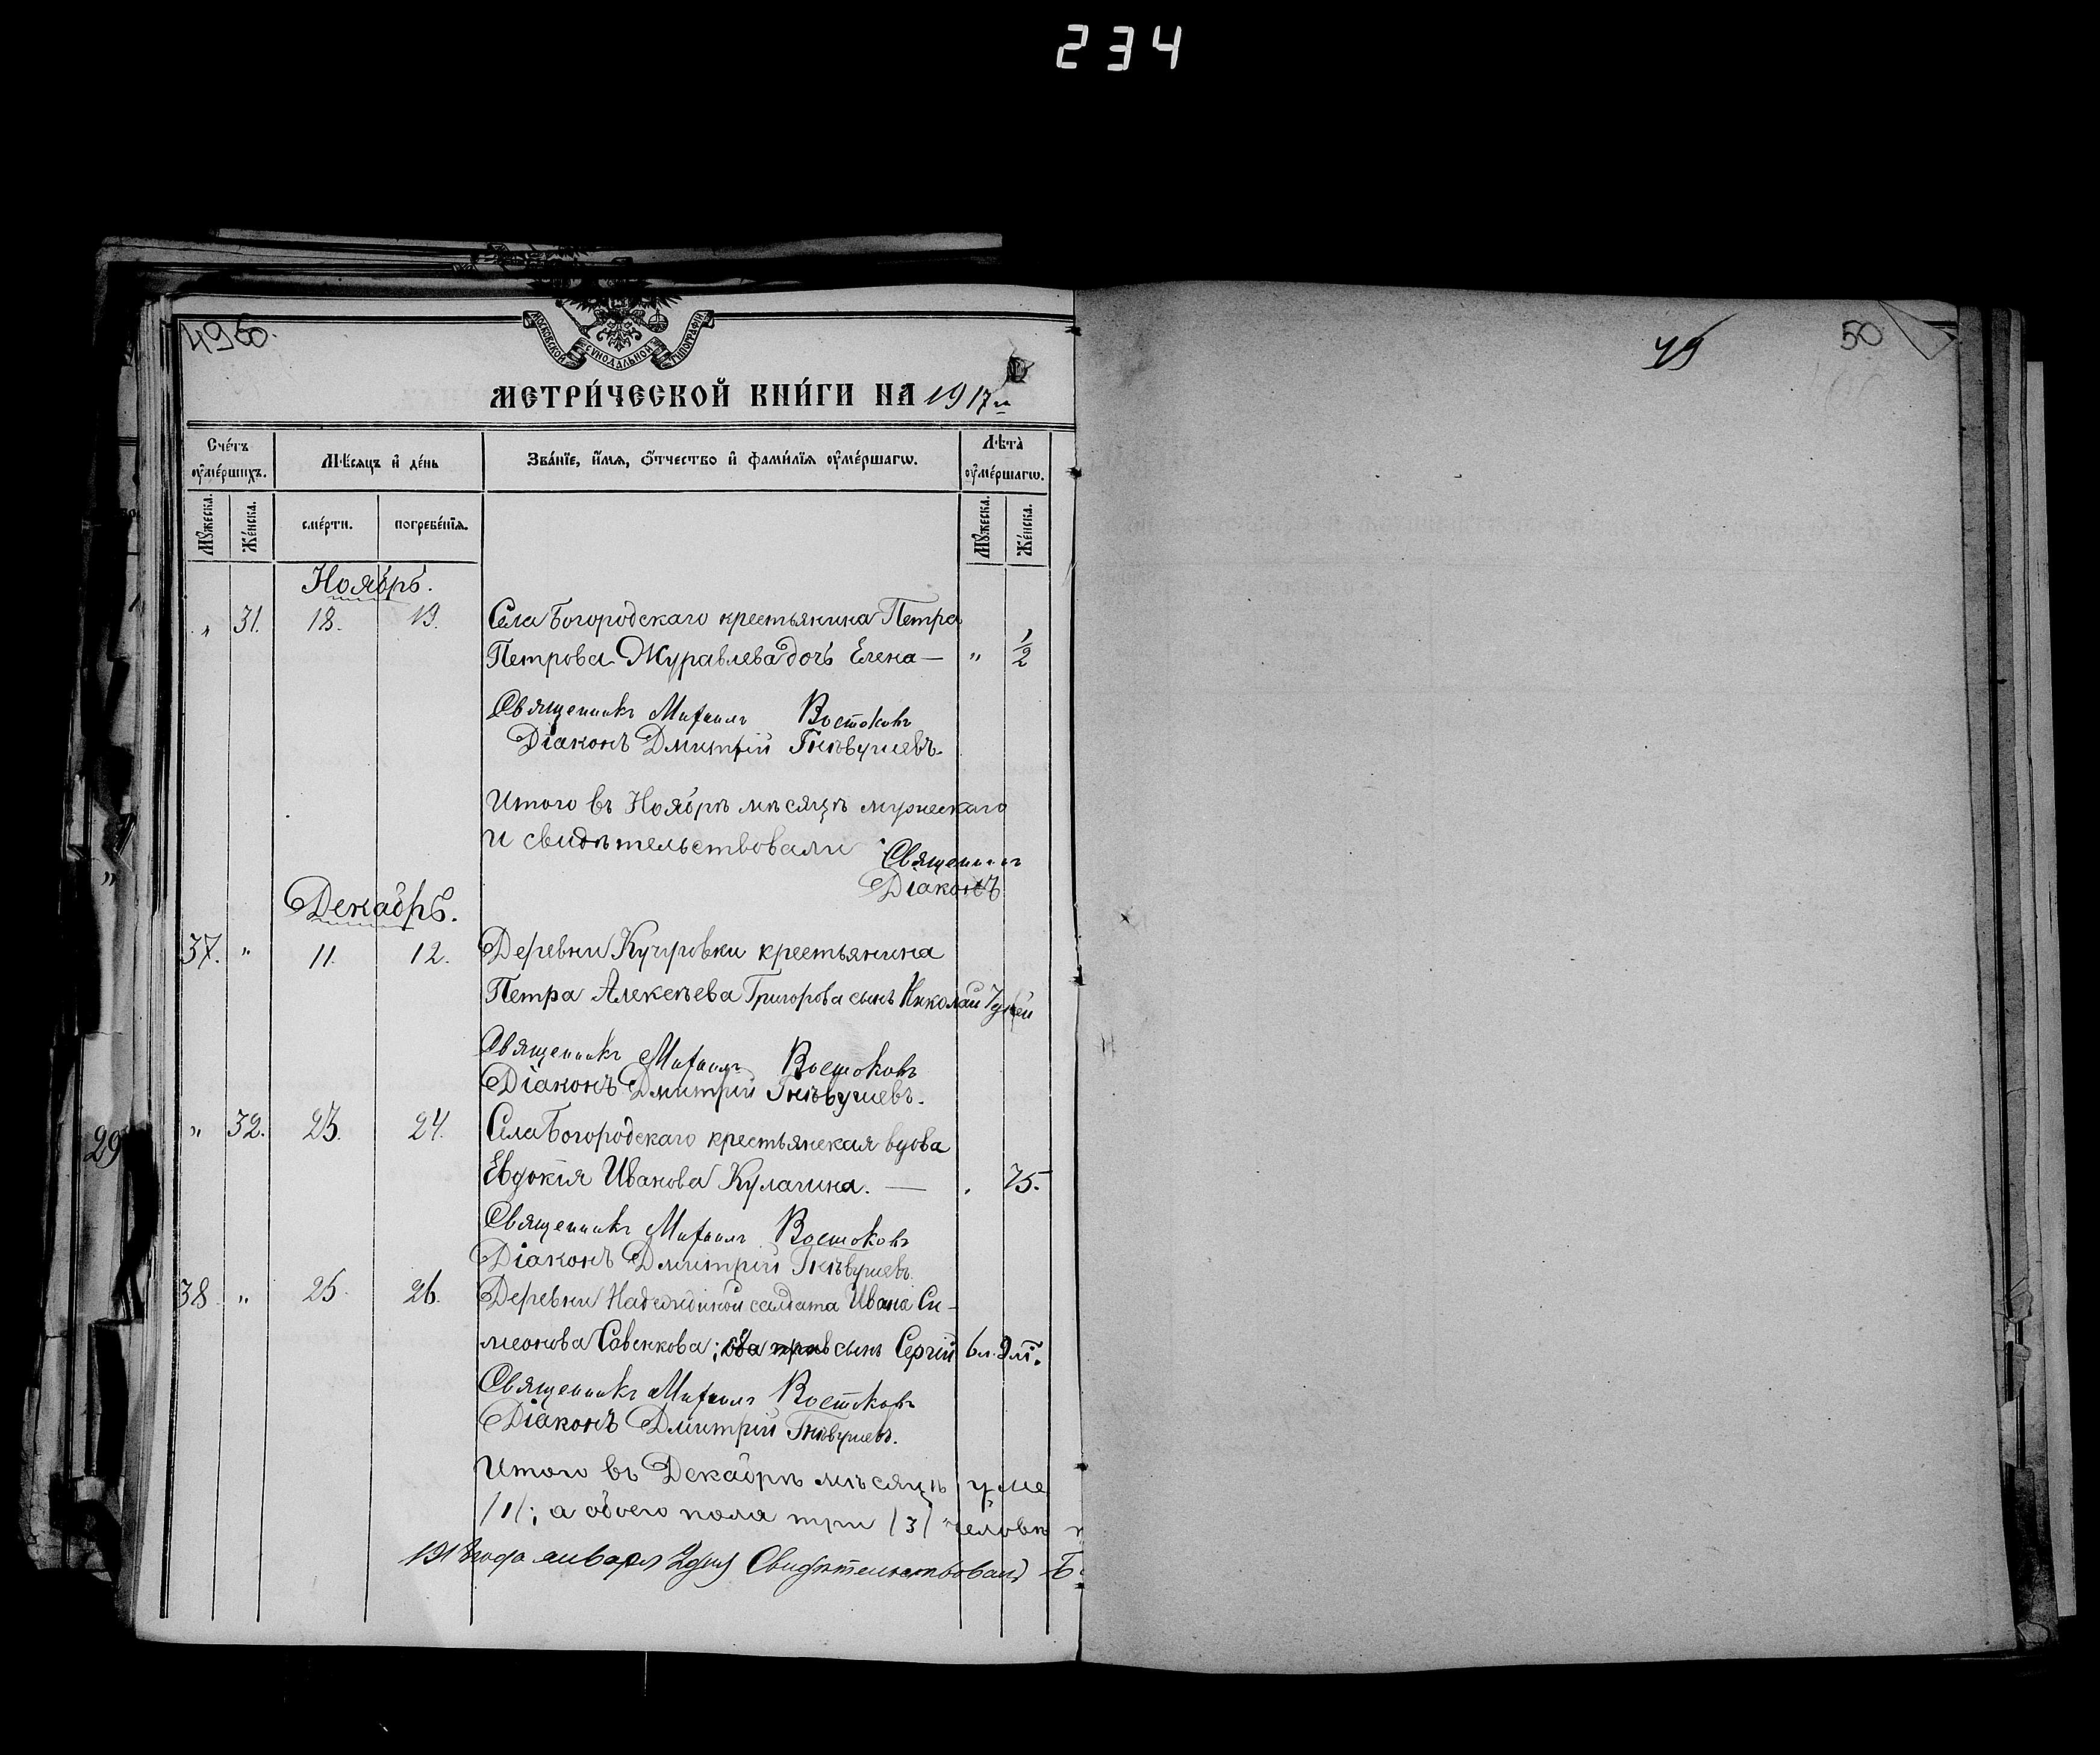 234
4950.
МОСКОВСКОЙ СУНОДАЛЬНОЙ ТИПОГРАФІИ
МЕТРИ́ЧЕСКОЙ КНИ́ГИ НА 1917 г.
49
50
Сче́тъ ᲂу҆ме́ршихъ.
Мѣ́сяцъ и҆ де́нь
Зва́нїе, и҆́мѧ, ѻ҆́тчество и҆ фами́лїѧ ᲂу҆ме́ршагѡ.
Лѣта̀ ᲂу҆ме́ршагѡ.
Мꙋ́жеска.
Же́нска.
сме́рти.
погребе́нїѧ.
Мꙋ́жеска.
Же́нска.
Ноябрь.
„ 31. 18. 19. Села Богородскаго крестьянина Петра
Петрова Журавлева дочь Елена — „ 1/2
Священникъ Михаилъ Востоковъ
Діаконъ Дмитрій Гнѣвушевъ.
Итого въ Ноябрѣ мѣсяцѣ мужескаго
и свидѣтельствовали
Священникъ
Діаконъ
Декабрь.
37. „ 11. 12. Деревни Кучровки крестьянина
Петра Алексѣева Григорова сынъ Николай 7 дней
Священникъ Михаилъ Востоковъ
Діаконъ Дмитрій Гнѣвушевъ.
„ 32. 23. 24. Села Богородскаго крестьянская вдова
Евдокія Иванова Кулагина. — 75.
Священникъ Михаилъ Востоковъ
Діаконъ Дмитрій Гнѣвушевъ
38 „ 25. 26. Деревни Надеждиной салдата Ивана Си-
меонова Савенкова; сынъ Сергій 6 л. 9 м.
Священникъ Михаилъ Востоковъ
Діаконъ Дмитрій Гнѣвушевъ.
Итого въ Декабрѣ мѣсяцѣ уме
/1/; а обоего пола три /3/ человѣ
1918 года января 2 дня Свидѣтельствовалъ
29